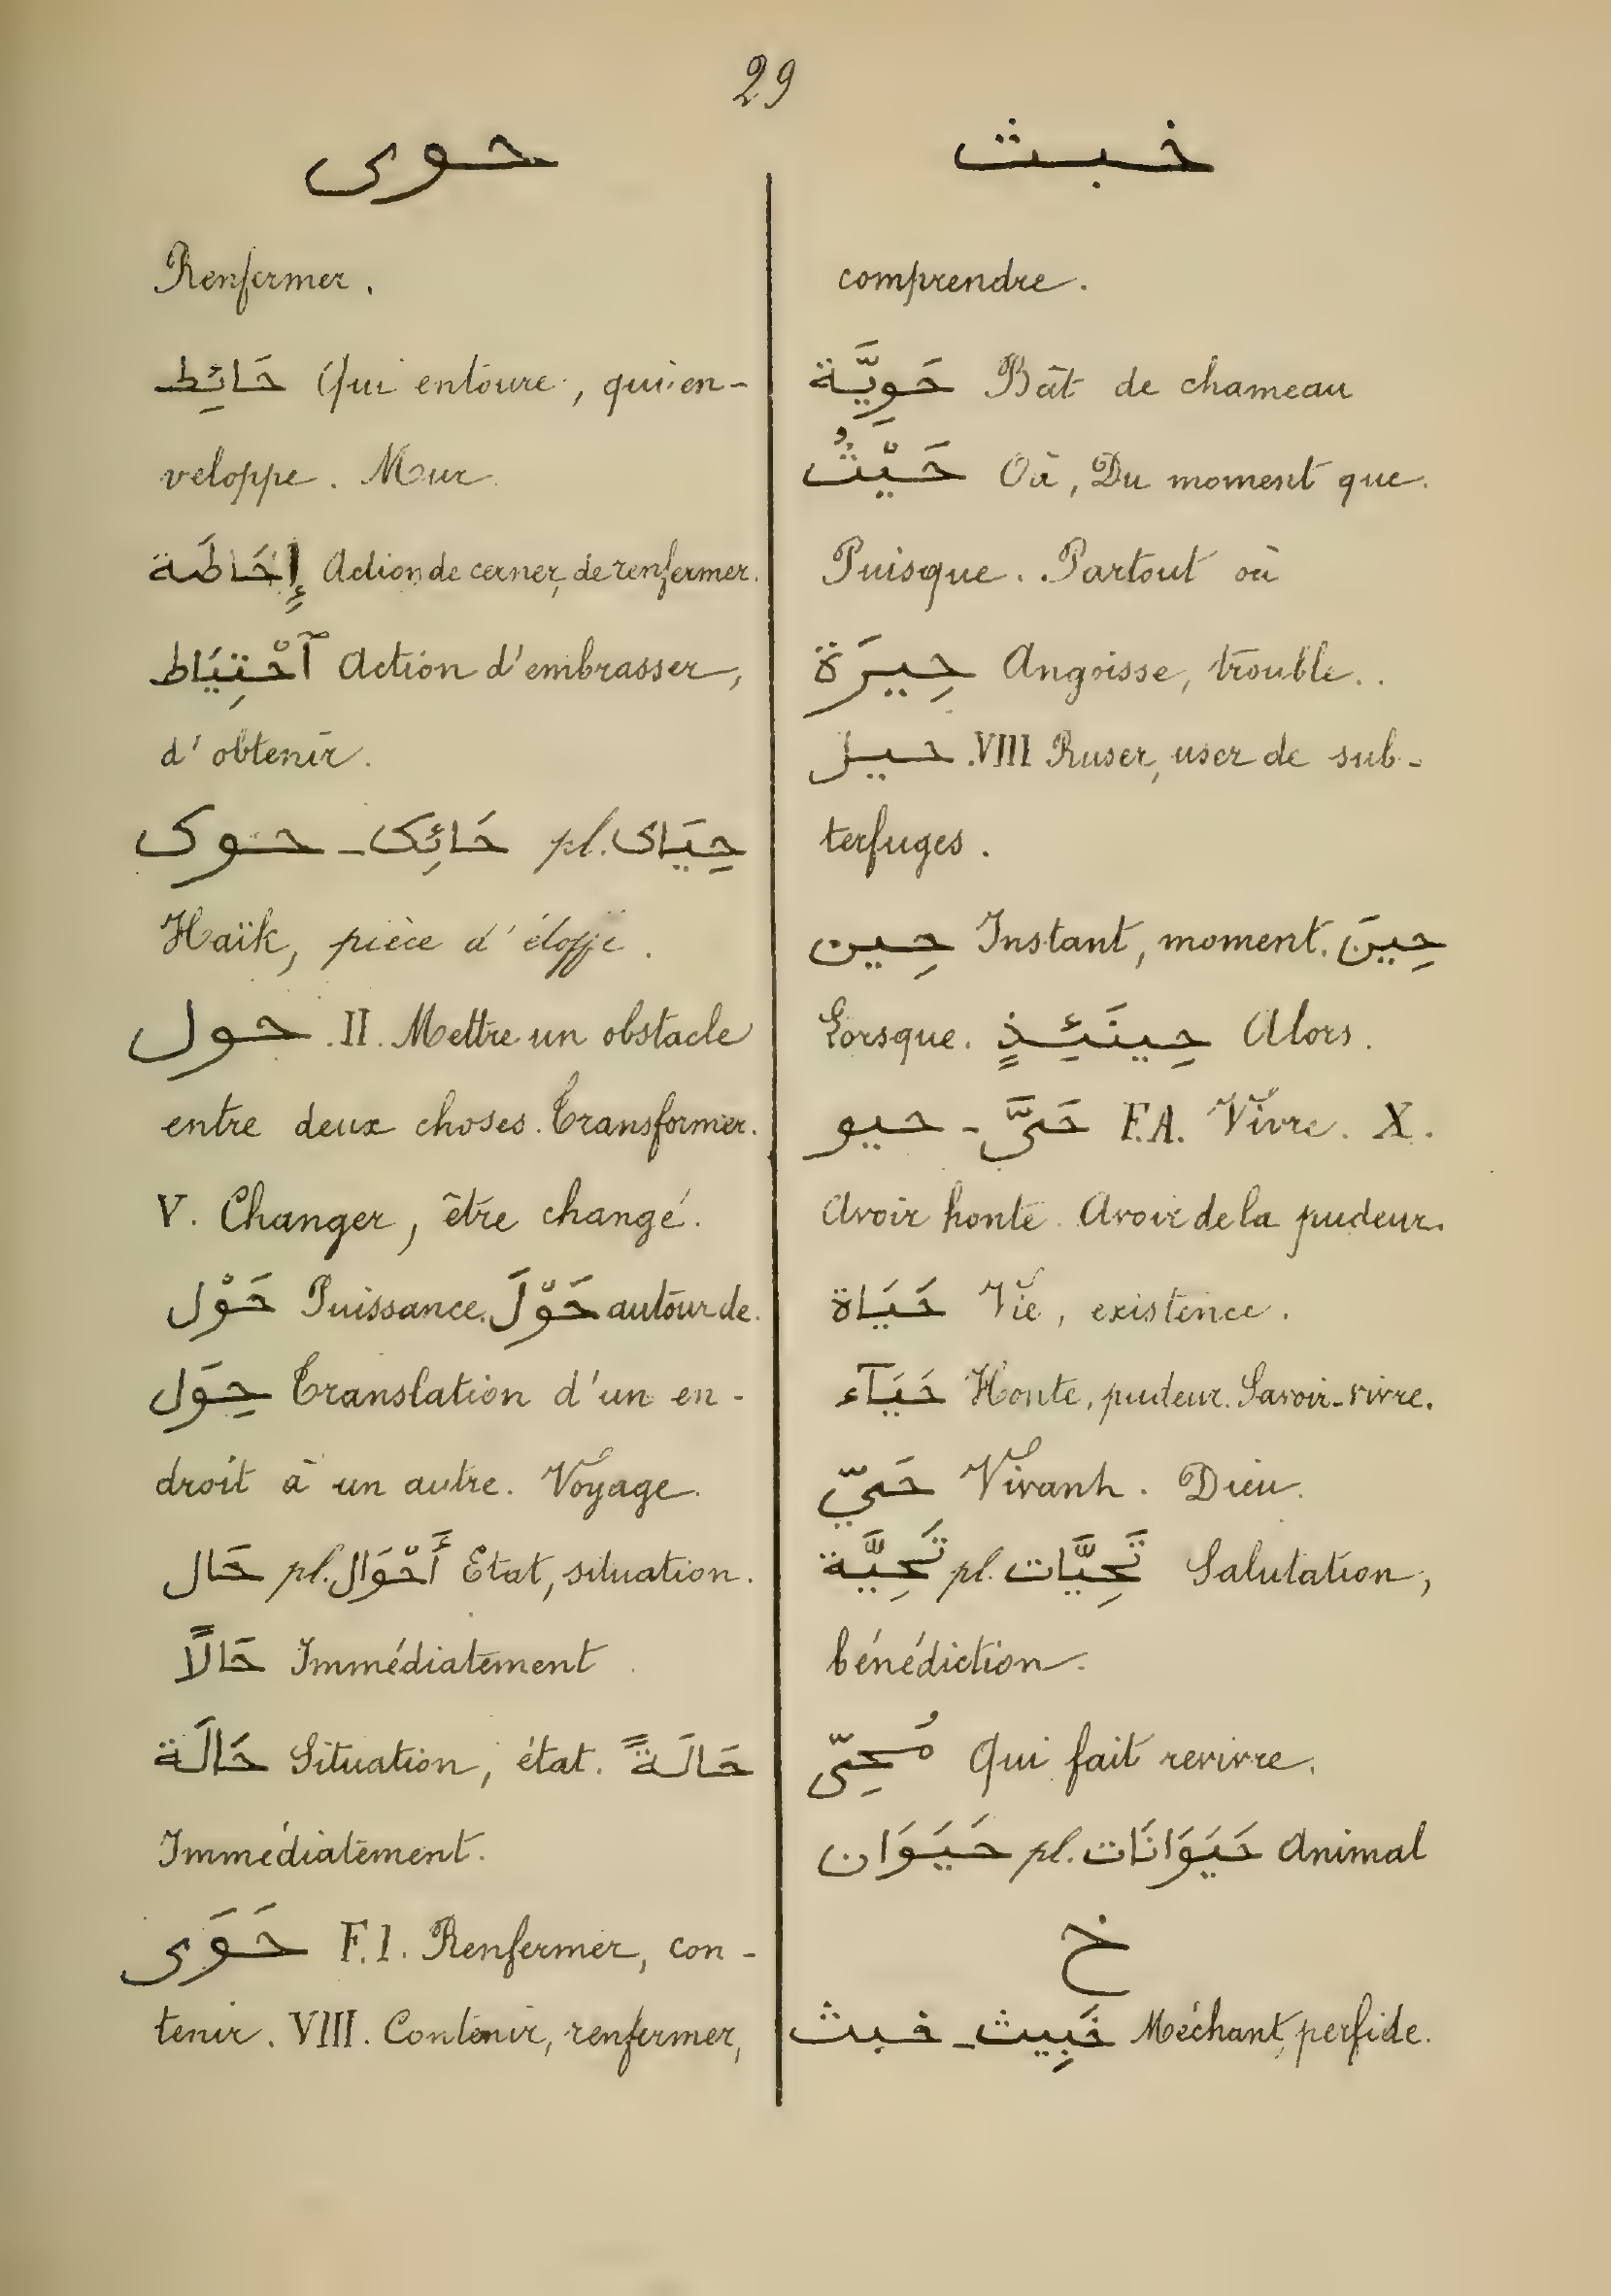 29
حوى
Renfermer.
حَائِط Qui entoure, qui en-
veloppe. Mur.
إِحَاطَة Action de cerner, de renfermer.
آحْتِيَاط Action d'embrasser,
d'obtenir.
حوك - حَائِك pl. حِيَاك
Haïk, pièce d'étoffe.
حول .II. Mettre un obstacle
entre deux choses. Transformer.
V. Changer, être changé.
حَوْل Puissance. حَوْلَ autour de.
حِوَل Translation d'un en-
droit à un autre. Voyage.
حَال pl. أَحْوَال Etat, situation.
حَالاً Immédiatement
حَالَة Situation, état. حَالَةً
Immédiatement.
حَوَى F.I. Renfermer, con-
tenir. VIII. Contenir, renfermer,
خبث
comprendre.
حَوِيَّة Bât de chameau
حَيْثُ Où, Du moment que.
Puisque. Partout où
حِيرَة Angoisse, trouble.
حيل .VIII Ruser, user de sub-
terfuges.
حِين Instant, moment. حِينَ
Lorsque. حِينَئِذٍ Alors.
حيو - حَىَّ F.A. Vivre. X.
Avoir honte. Avoir de la pudeur.
حَيَاة Vie, existence.
حَيَآء Honte, pudeur. Savoir-vivre.
حَيّ Vivant. Dieu.
تَحِيَّة pl. تَحِيَّات Salutation,
bénédiction.
مُحِيّ Qui fait revivre.
حَيَوَان pl. حَيَوَانَات Animal
خ
خبث - خَبِيث Méchant, perfide.